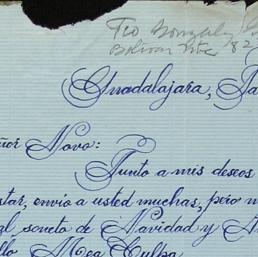 Teo Gonzalez
Bolivar 82
Guadalajara,
ñor Novo:
Junto a mis deseos
star, envio a usted muchas, pero
al soneto de Navidad y A
llo Mea Culpa